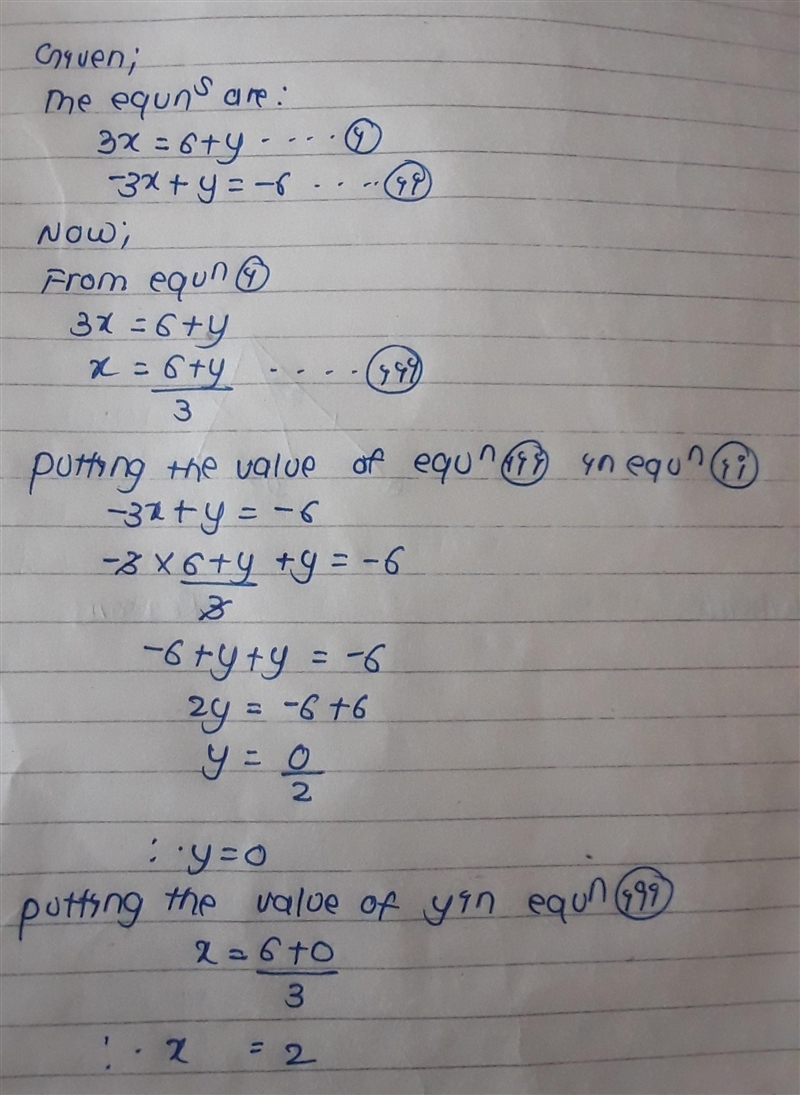 Given;
The equnˢ are:
3x = 6+y ---- (i)
-3x + y = -6 ---- (ii)
Now;
From equⁿ (i)
3x = 6+y
x = 6+y ---- (iii)
3
putting the value of equⁿ (iii) in equⁿ (ii)
-3x + y = -6
-3 × 6+y + y = -6
3
-6 + y + y = -6
2y = -6+6
y = 0
2
∴ y = 0
putting the value of y in equⁿ (iii)
x = 6+0
3
∴ x = 2